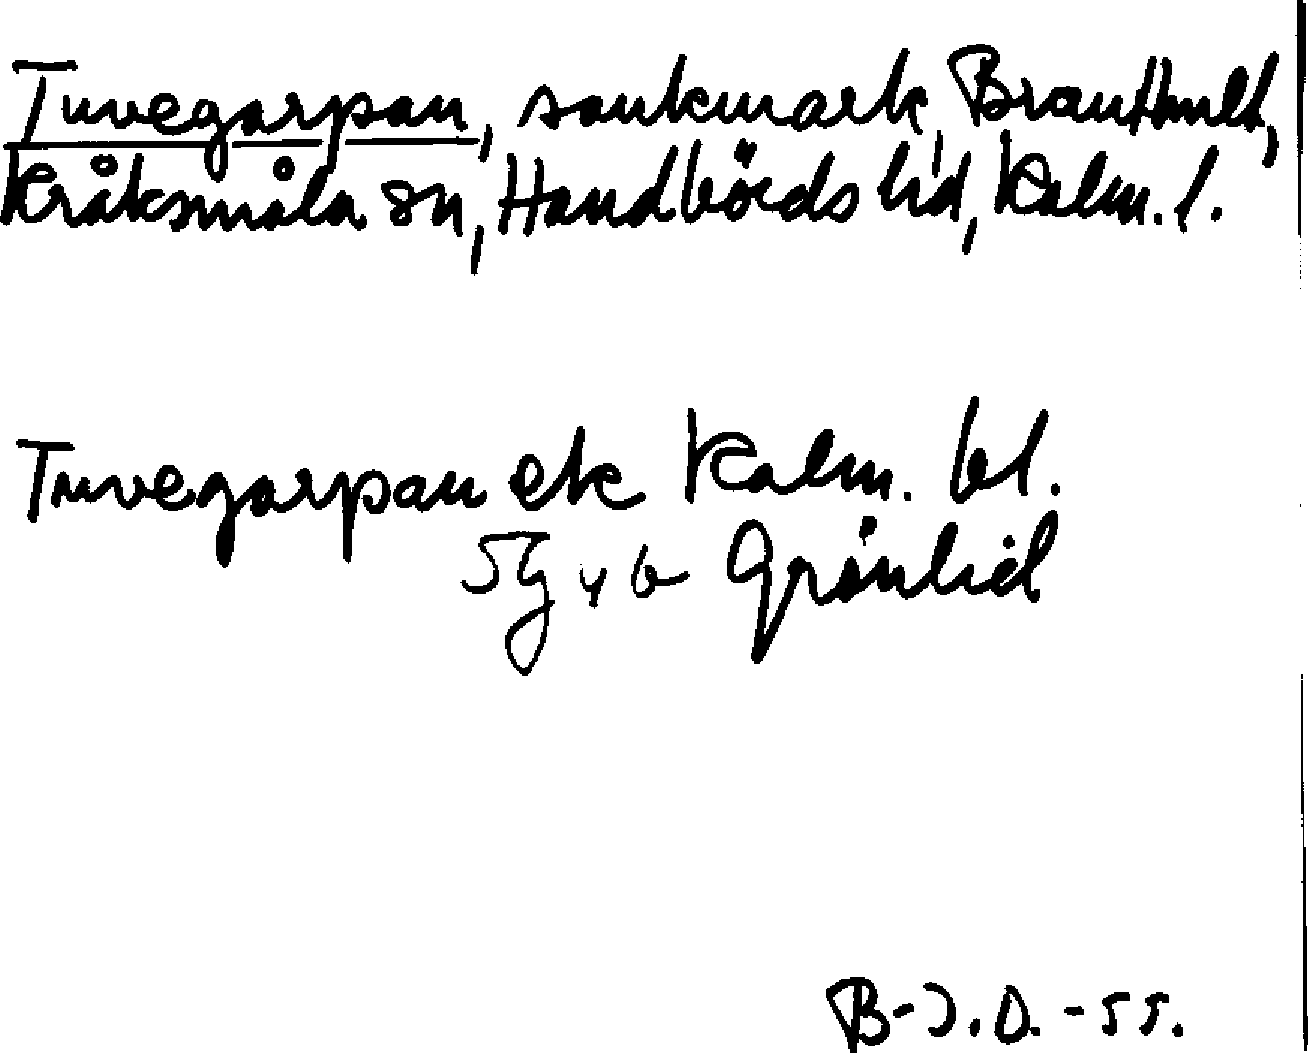 Tuvegarpan, sankmark, Branthult,
Kråksmåla sn, Handbörds hd, Kalm. l.
Tuvegarpan ek Kalm. bl.
5g v b Grönlid
B-J.D. -55.